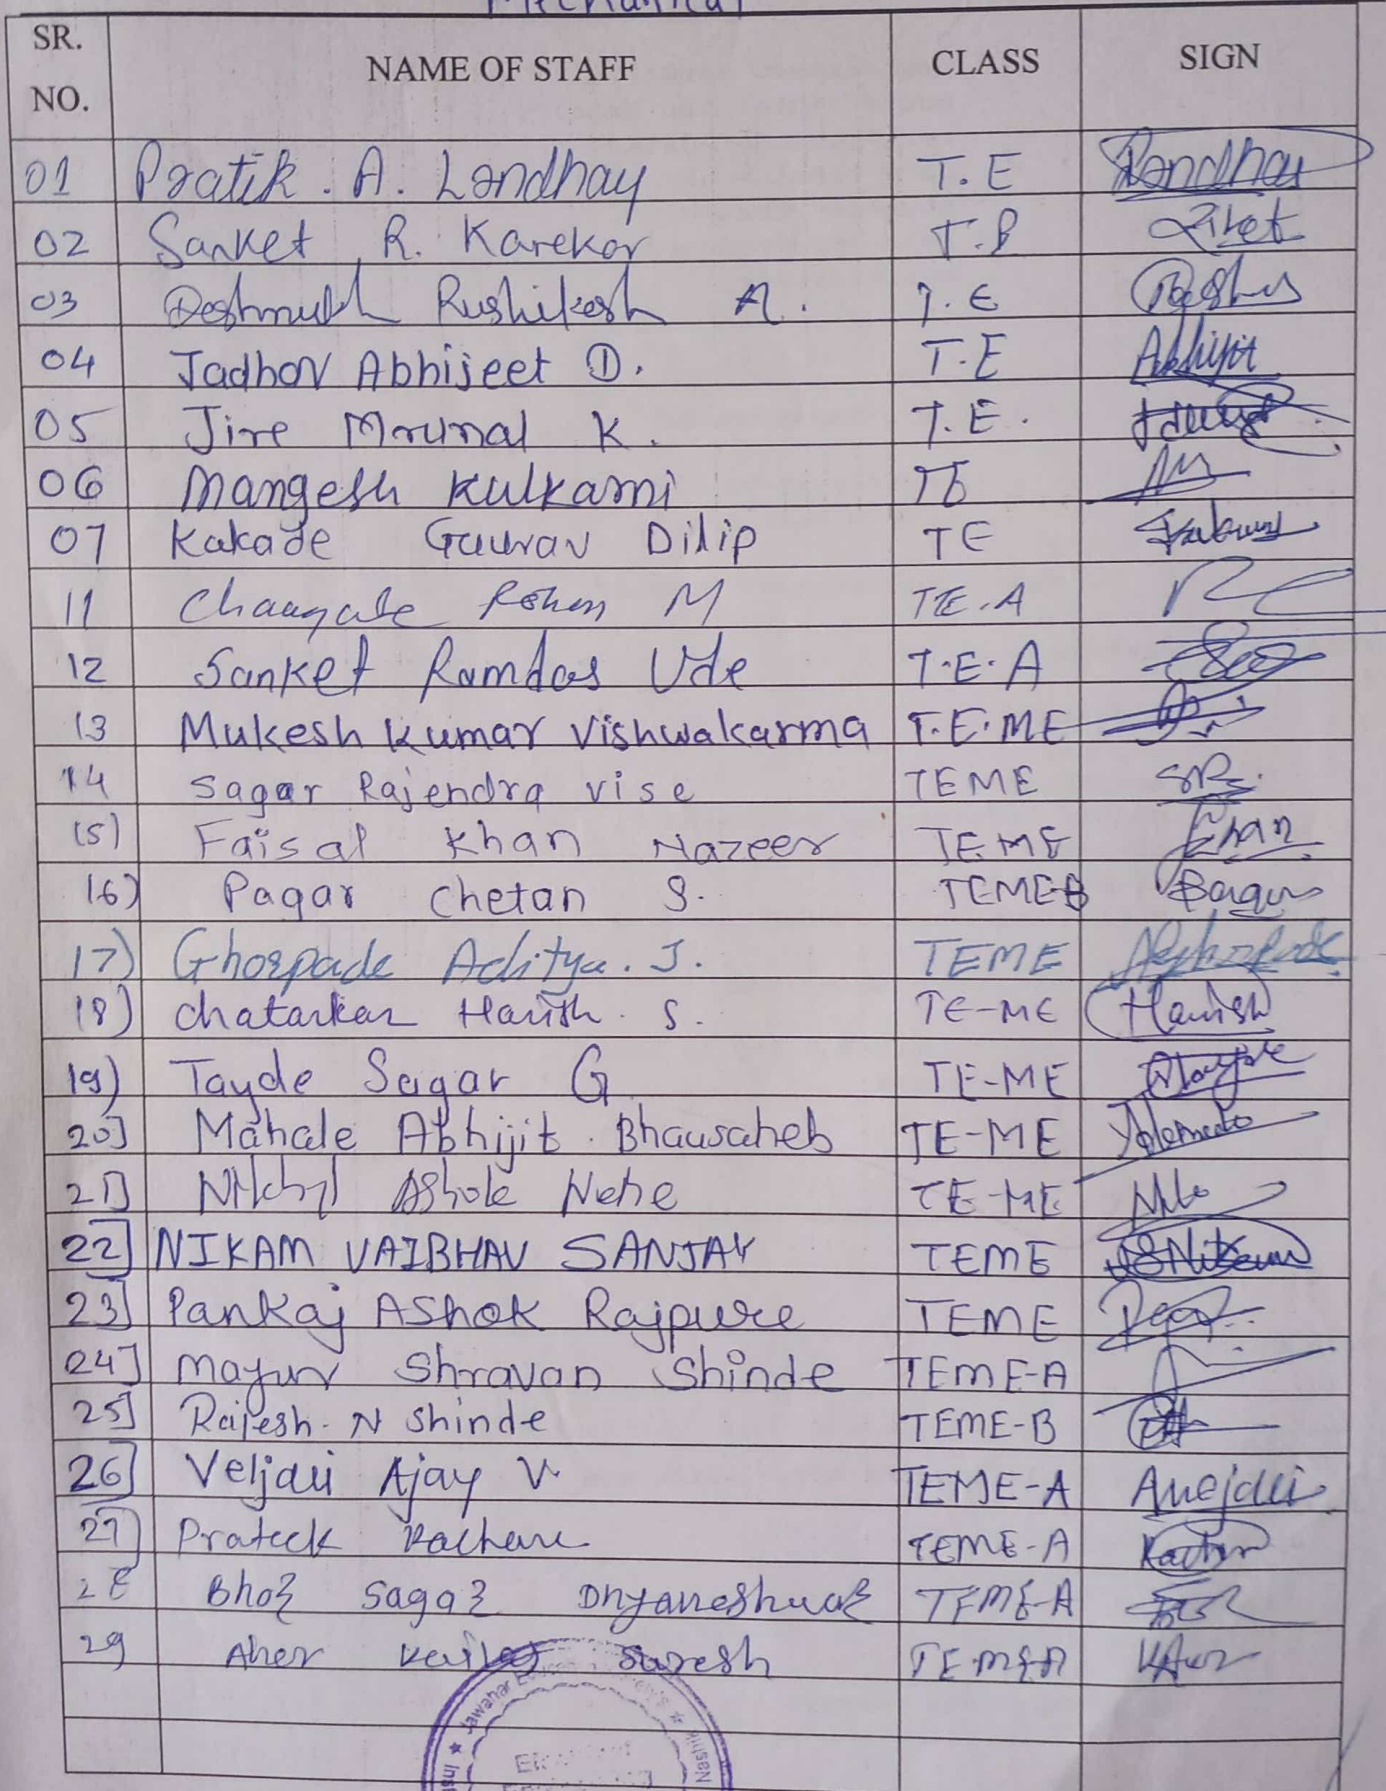 Mechanical
SR. NO. NAME OF STAFF CLASS SIGN
01 Pratik . A. Londhay T.E Londhay
02 Sanket R. Karekar T.E
03 Deshmukh Rushikesh A. T.E
04 Jadhav Abhijeet D. T.E Abhijit
05 Jire Mrunal K. T.E.
06 Mangesh Kulkarni TE
07 Kakade Gaurav Dilip TE
11 M TE.A
12 Sanket Ramdas Ude T.E.A
13 Mukesh Kumar Vishwakarma T.E.ME
14 Sagar Rajendra vise TEME
15) Faisal Khan Nazeer TEME Khan
16) Pagar Chetan S. TEME-B
17) Ghorpade Aditya. J. TEME
18) chatarkar Harish. S. TE-ME Harish
19) Tayde Sagar G TE-ME
20] Mahale Abhijit. Bhausaheb TE-ME
21] Nikhil Ashok Nehe TE-ME
22] NIKAM VAIBHAV SANJAY TEME
23] Pankaj AShok Rajpure TEME
24] Mayur Shravan Shinde TEME-A
25] Rajesh. N Shinde TEME-B
26] Veljali Ajay V. TEME-A
27] Prateek TEME-A
28 Bhor Sagar Dnyaneshwar TEME-A
29 Aher Kailas Suresh TEME-A
★ Jawahar
Nashik